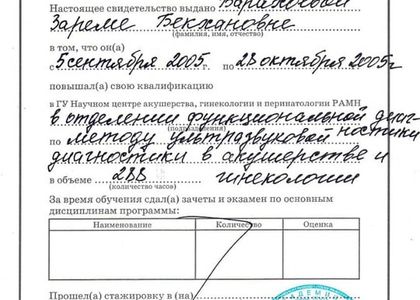 Настоящее свидетельство выдано
Зареме Бекхановне
(фамилия, имя, отчество)
в том, что он(а)
с 5 сентября 2005г. по 28 октября 2005г
повышал(а) свою квалификацию
в ГУ Научном центре акушерства, гинекологии и перинатологии РАМН
в отделении функциональной диаг-
ностики
по методу ультразвуковой
диагностики в акушерстве и
гинекологии
в объеме 288
(количество часов)
За время обучения сдал(а) зачеты и экзамен по основным
дисциплинам программы:
Наименование Количество Оценка
Прошел(а) стажировку в (на)